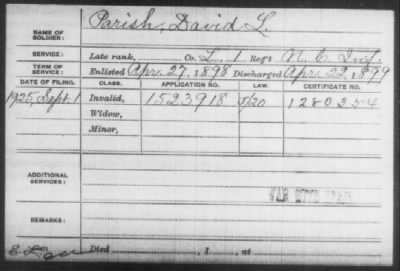 NAME OF SOLDIER: Parish, David L.
SERVICE: Late rank, Co. L, 1 Reg't N. C. Inf.
TERM OF SERVICE: Enlisted Apr. 27, 1898 Discharged Apr. 22, 1899
DATE OF FILING. CLASS. APPLICATION NO. LAW. CERTIFICATE NO.
1925, Sept. 1 Invalid, 1523918 5/20 1280354
Widow,
Minor,
ADDITIONAL SERVICES:
WAR WITH SPAIN
REMARKS:
Died , 1 , at